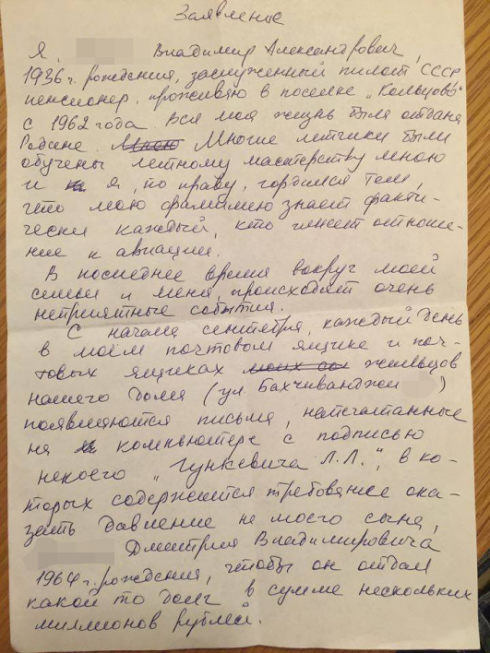 Заявление
Я, Владимир Александрович,
1936 г. рождения, заслуженный пилот СССР
пенсионер, проживаю в поселке "Кольцово"
с 1962 года. Вся моя жизнь была отдана
Родине. Мною Многие летчики были
обучены летному мастерству мною
и я, по праву, гордился тем,
что мою фамилию знает факти-
чески каждый, кто имеет отноше-
ние к авиации.
В последнее время вокруг моей
семьи и меня, происходят очень
неприятные события.
С начала сентября, каждый день
в моём почтовом ящике и поч-
товых ящиках жильцов
нашего дома (ул. Бахчиванджи )
появляются письма, напечатанные
на компьютере с подписью
некоего "Гункевича Л.Л.", в ко-
торых содержится требование ока-
зать давление на моего сына,
Дмитрия Владимировича
1964 г. рождения, чтобы он отдал
какой то долг в сумме нескольких
миллионов рублей.